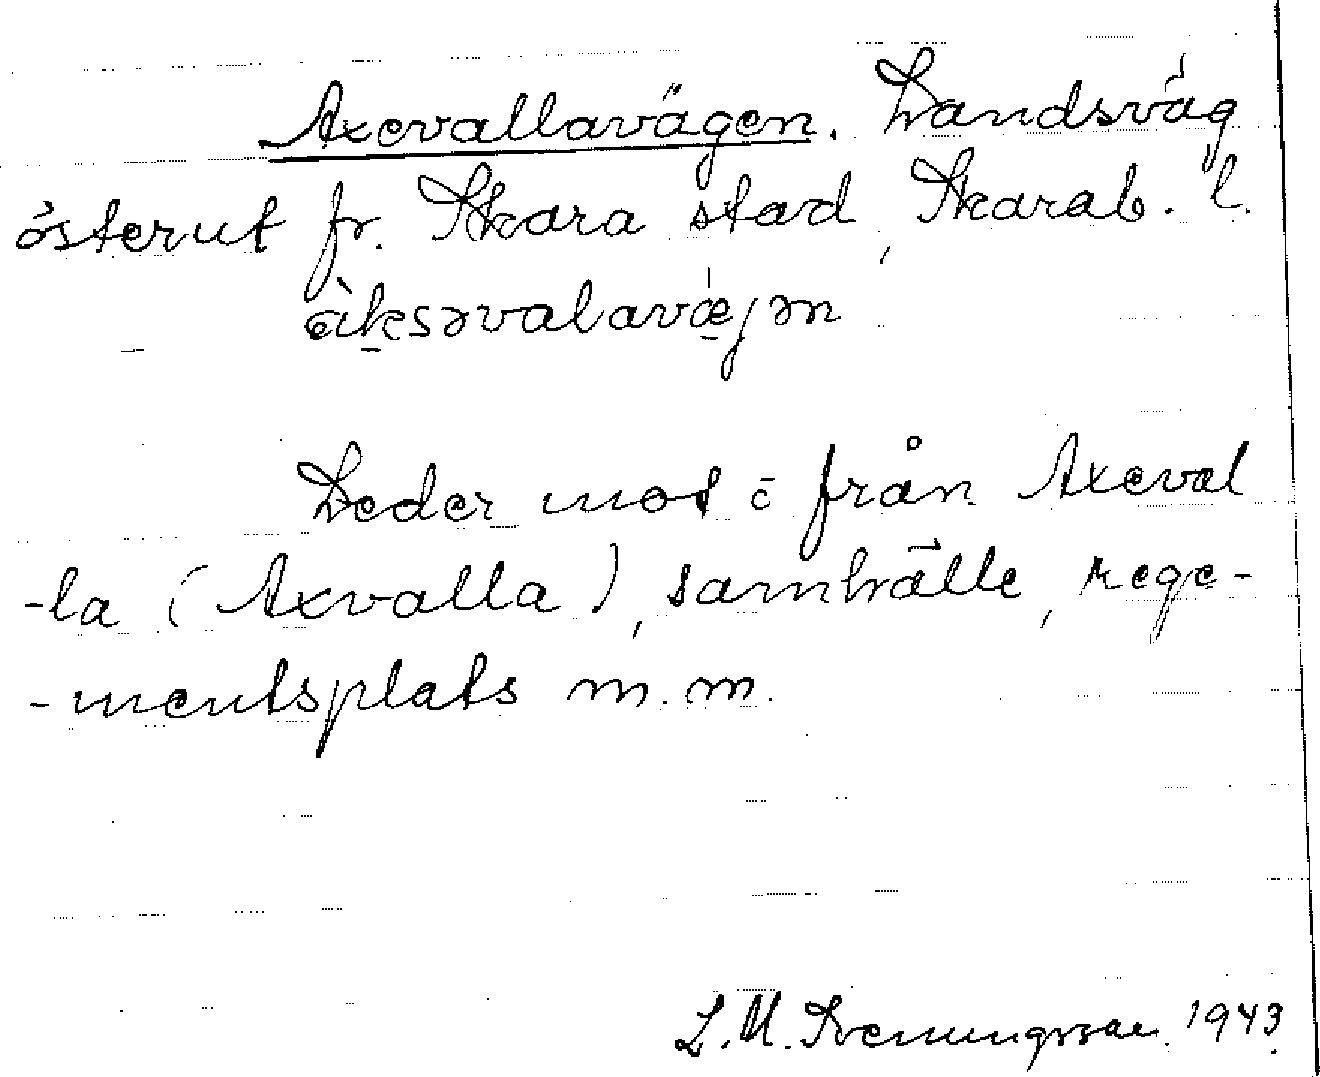 Axevallavägen. Landsväg
österut fr. Skara stad, Skarab. l.
àksəvalavæ̀jən
Leder mot o från Axeval
-la (Axvalla), samhälle, rege-
-mentsplats m.m.
L.M. Svenungsson 1943